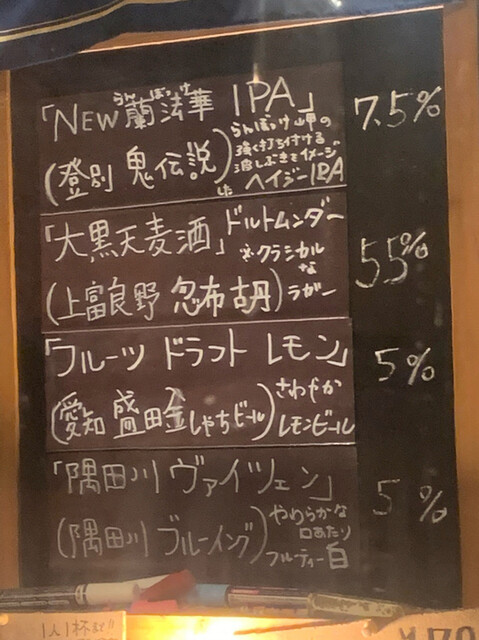 「NEW蘭法華 IPA」 7.5%
らんぼっけ
(登別 鬼伝説)
らんぼっけ岬の
強く打ち付ける
波しぶきをイメージ
した ヘイジーIPA
「大黒天麦酒」ドルトムンダー 5.5%
※クラシカル
な
(上富良野 忽布古丹) ラガー
「フルーツ ドラフト レモン」 5%
(愛知 盛田金しゃちビール) さわやか
レモンビール
「隅田川 ヴァイツェン」 5%
(隅田川 ブルーイング) やわらかな
口あたり
フルーティー白
1人1杯